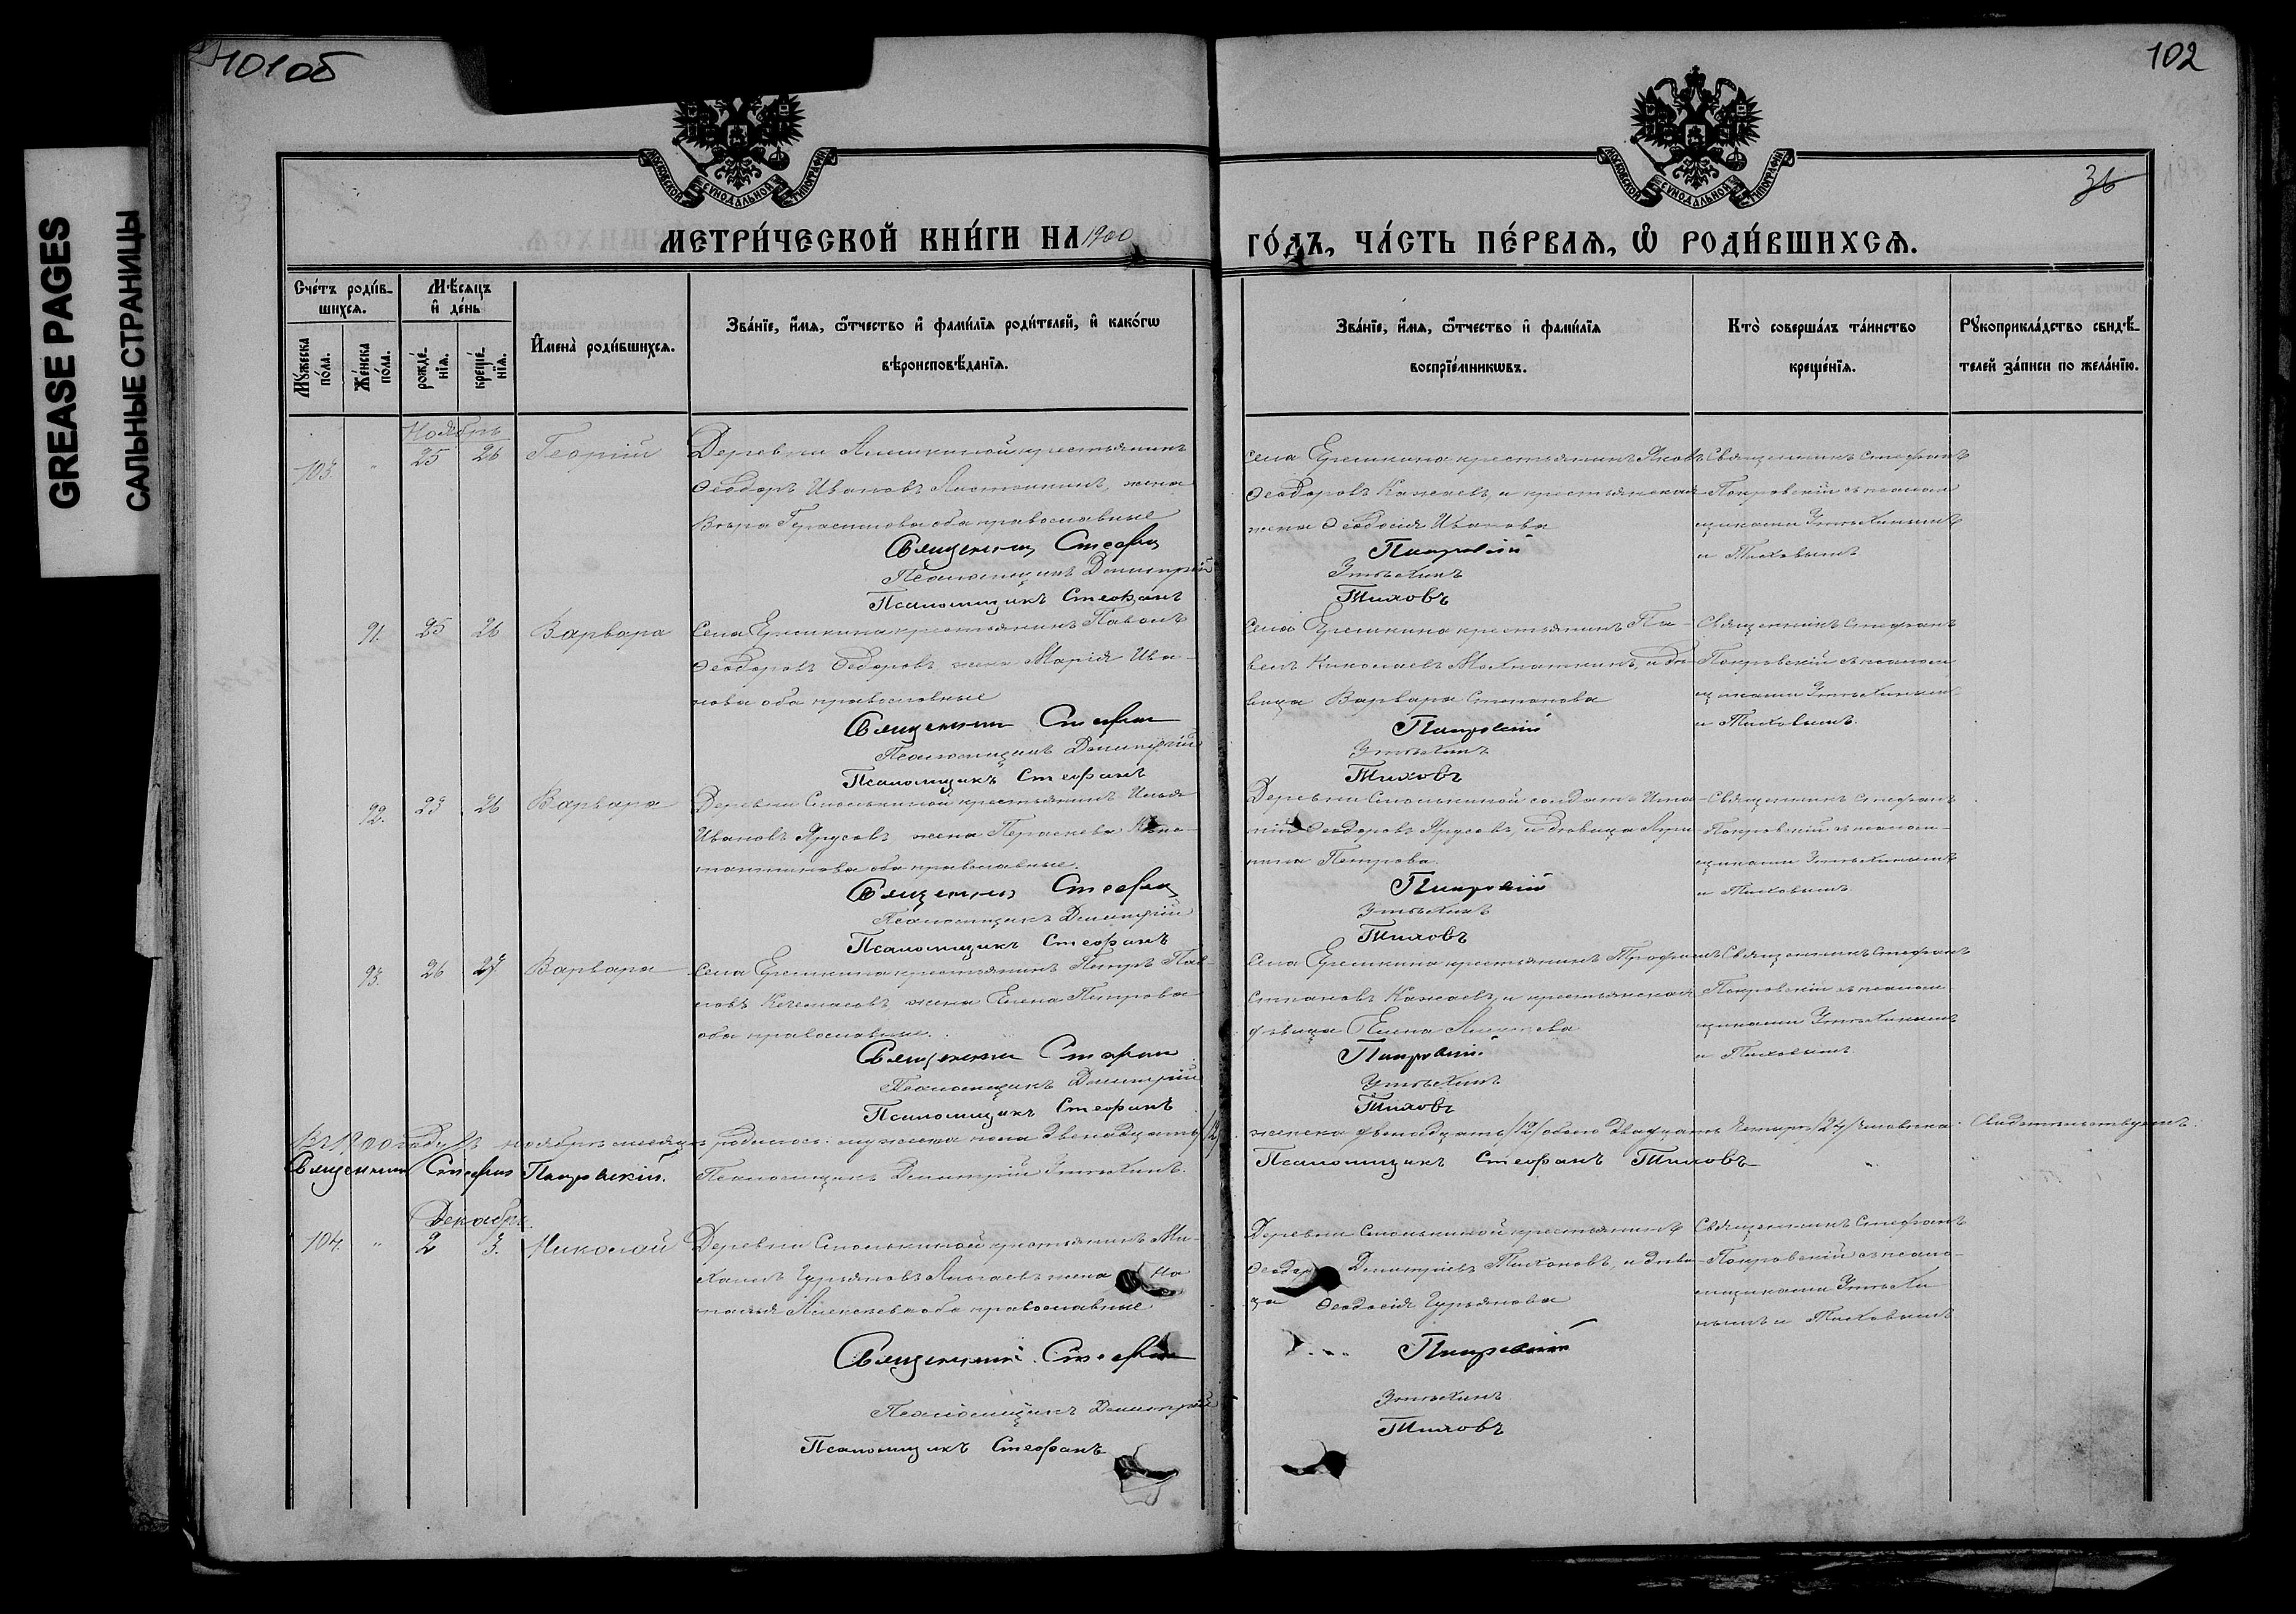 101об
102
36
GREASE PAGES
САЛЬНЫЕ СТРАНИЦЫ
МОСКОВСКОЙ СѴНОДАЛЬНОЙ ТИПОГРАФІИ
МОСКОВСКОЙ СѴНОДАЛЬНОЙ ТИПОГРАФІИ
МЕТРИ́ЧЕСКОЙ КНИ́ГИ НА 1900
ГО́ДЪ, ЧА́СТЬ ПЕ́РВАѦ, Ѡ҆ РОДИ́ВШИХСѦ.
Сче́тъ роди́в-
шихсѧ.
Мꙋ́жеска по́ла.
Же́нска по́ла.
Мѣ́сѧцъ
и҆ де́нь
рожде́-
нїѧ.
креще́-
нїѧ.
И҆мена̀ роди́вшихсѧ.
Зва́нїе, и҆́мѧ, ѻ҆́тчество и҆ фами́лїѧ роди́телей, и҆ како́гѡ
вѣроисповѣ́данїѧ.
Зва́нїе, и҆́мѧ, ѻ҆́тчество и҆ фами́лїѧ
воспрїе́мникѡвъ.
Кто̀ соверша́лъ та́инство
креще́нїѧ.
Рꙋкоприкла́дство свидѣ́-
телей за́писи по жела́нїю.
Ноябрь
103. " 25 26 Георгій Деревни крестьянинъ
Ѳеодоръ Ивановъ жена
Вѣра Герасимова оба православные
Священникъ Стефанъ
Псаломщикъ Димитрій
Псаломщикъ Стефанъ
Села Ерешкина крестьянинъ Яковъ
Ѳеодоровъ Кажаевъ, и крестьянская
жена Ѳеодосія Иванова
Покровскій
Утѣхинъ
Тиховъ
Священникъ Стефанъ
Покровскій съ псалом
щиками Утѣхинымъ
и Тиховымъ
91. 25 26 Варвара Села Ерешкина крестьянинъ Павелъ
Ѳеодоровъ Ѳедоровъ жена Марія Ива-
нова оба православные
Священникъ Стефанъ
Псаломщикъ Димитрій
Псаломщикъ Стефанъ
Села Ерешкина крестьянинъ Па-
велъ Николаевъ и дѣ-
вица Варвара Степанова
Покровскій
Утѣхинъ
Тиховъ
Священникъ Стефанъ
Покровскій съ псалом
щиками Утѣхинымъ
и Тиховымъ.
92. 25 26 Варвара Деревни Смолькиной крестьянинъ Илья
Ивановъ Ярусовъ жена Параскева Кон-
стантинова оба православные.
Священникъ Стефанъ
Псаломщикъ Димитрій
Псаломщикъ Стефанъ
Деревни Смолькиной солдатъ Игна-
тій Ѳеодоровъ Ярусовъ, и дѣвица
Петрова.
Покровскій
Утѣхинъ
Тиховъ
Священникъ Стефанъ
Покровскій съ псалом-
щиками Утѣхинымъ
и Тиховымъ.
93. 26 27 Варвара Села Ерешкина крестьянинъ Петръ Пав-
ловъ жена Елена Петрова
оба православные.
Священникъ Стефанъ
Псаломщикъ Димитрій
Псаломщикъ Стефанъ
Села Ерешкина крестьянинъ Трофимъ
Степановъ Кажаевъ, и крестьянская
дѣвица Елена
Покровскій.
Утѣхинъ
Тиховъ
Священникъ Стефанъ
Покровскій съ псалом
щиками Утѣхинымъ
и Тиховымъ.
Въ 1900 году въ ноябрѣ мѣсяцѣ родилось: мужеска пола двенадцать /12/
женска двенадцать /12/ обоего двадцать четыре /24/ человѣка. Свидѣтельствуемъ:
Священникъ Стефанъ Покровскій. Псаломщикъ Димитрій Утѣхинъ.
Псаломщикъ Стефанъ Тиховъ
Декабрь.
104. " 2 3. Николай Деревни Смолькиной крестьянинъ Ми-
хаилъ Гурьяновъ жена На
талья Алексѣева оба православные
Священникъ Стефанъ
Псаломщикъ Димитрій
Псаломщикъ Стефанъ
Деревни Смолькиной крестьянинъ
Ѳеодоръ Димитріевъ Тихоновъ, и дѣви-
ца Ѳеодосія Гурьянова
Покровскій
Утѣхинъ
Тиховъ
Священникъ Стефанъ
Покровскій съ псало-
мщиками Утѣхи
нымъ и Тиховымъ